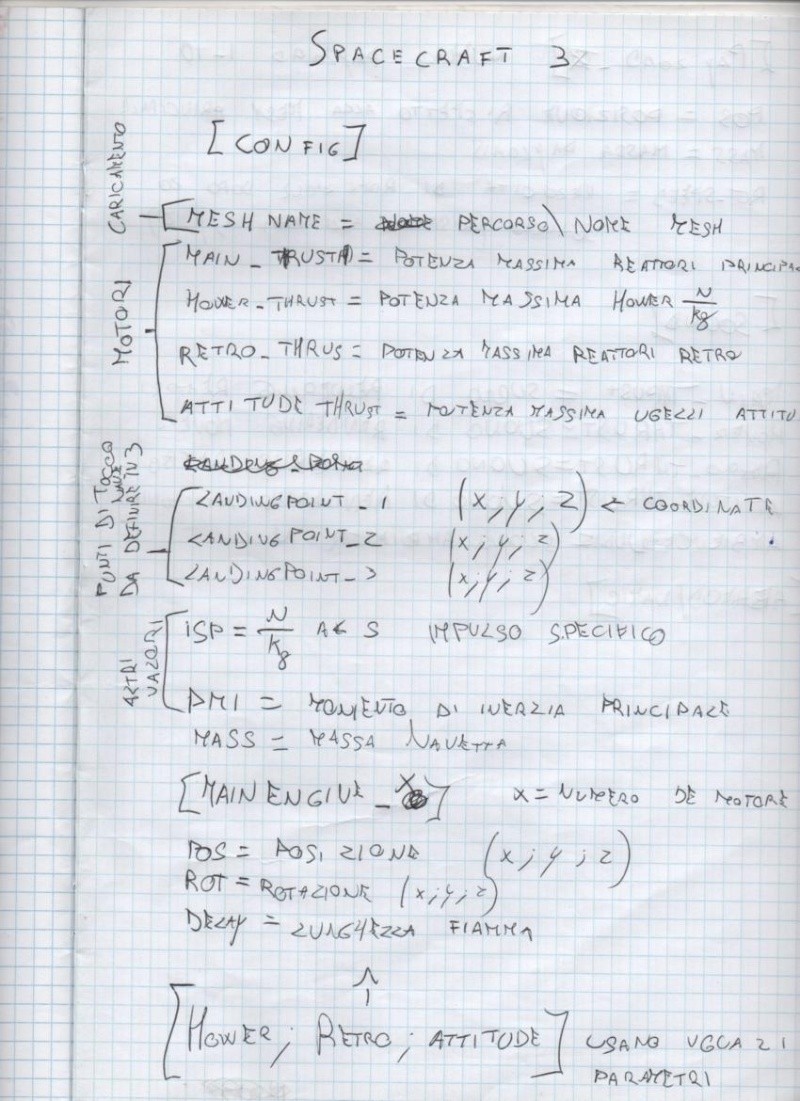 SPACECRAFT 3
[CONFIG]
CARICAMENTO
MESH NAME = PERCORSO\NOME MESH
MOTORI
MAIN_TRUSTH = POTENZA MASSIMA REATTORI PRINCIPA
HOWER_THRUST = POTENZA MASSIMA HOWER N/kg
RETRO_THRUS = POTENZA MASSIMA REATTORI RETRO
ATTITUDE THRUST = POTENZA MASSIMA UGELLI ATTITU
PUNTI DI TOCCO
NAVE
DA DEFINIRE IN 3
LANDINGPOINT_1 (X, Y, Z) ← COORDINATE
LANDINGPOINT_2 (X; Y; Z)
LANDINGPOINT_3 (X; Y; Z)
ALTRI
VALORI
ISP = N/kg AL S IMPULSO SPECIFICO
PMI = MOMENTO DI INERZIA PRINCIPALE
MASS = MASSA NAVETTA
[MAIN ENGINE_X] X = NUMERO DE MOTORE
POS = POSIZIONE (X; Y; Z)
ROT = ROTAZIONE (X; Y; Z)
DELAY = LUNGHEZZA FIAMMA
[HOWER; RETRO; ATTITUDE] USANO UGUALI
PARAMETRI